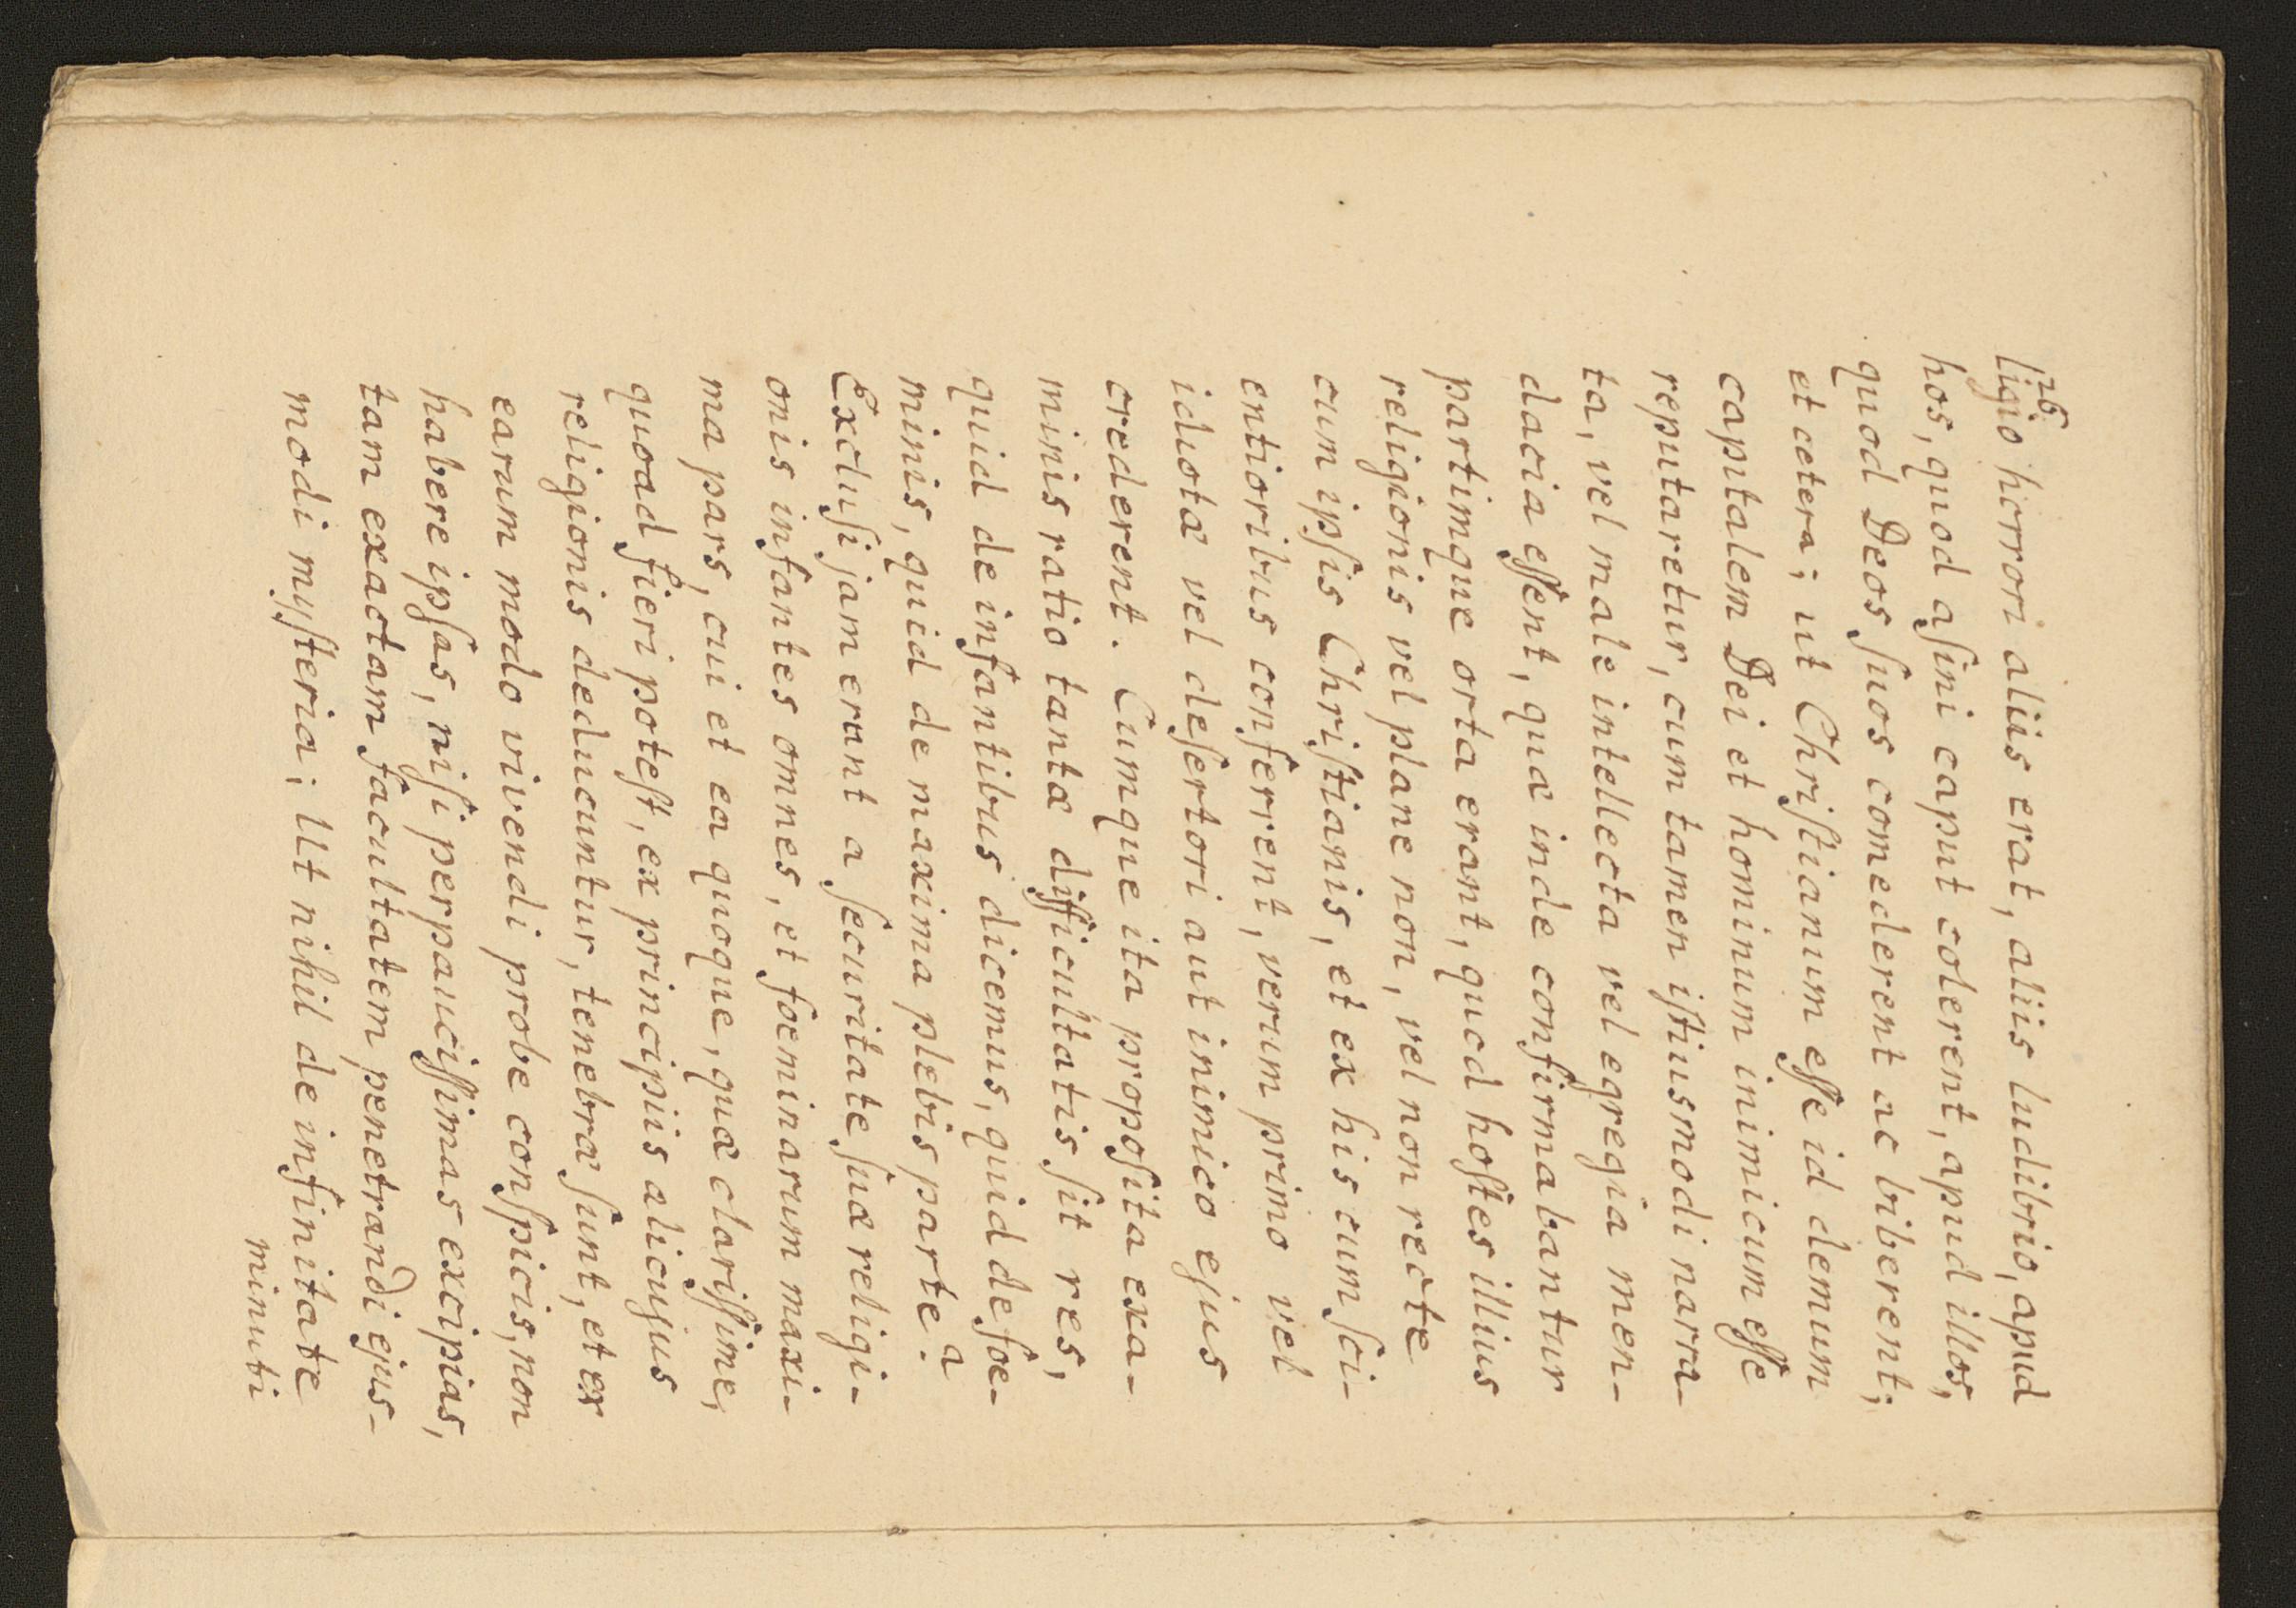 126
ligio horrori aliis erat, aliis ludibrio, apud
hos, quod aſini caput colerent, apud illos,
quod Deos ſuos comederent ac biberent;
et cetera; ut Chriſtianum eſſe id demum
capitalem Dei et hominum inimicum eſſe
reputaretur, cum tamen iſtiusmodi narra-
ta, vel male intellecta vel egregia men-
dacia eſſent, quæ inde confirmabantur
partimque orta erant, quod hoſtes illius
religionis vel plane non, vel non recte
cum ipſis Chriſtianis, et ex his cum ſci-
entioribus conferrent, verum primo vel
idiotæ vel deſertori aut inimico ejus
crederent. Cumque ita propoſita exa-
minis ratio tantæ difficultatis ſit res,
quid de infantibus dicemus, quid de foe-
minis, quid de maxima plebis parte?
Excluſi jam erunt a ſecuritate ſuæ religi-
onis infantes omnes, et foeminarum maxi-
ma pars, cui et ea quoque, quæ clariſſime,
quoad fieri poteſt, ex principiis alicujus
religionis deducuntur, tenebræ ſunt, et ex
earum modo vivendi probe conſpicis, non
habere ipſas, niſi perpauciſſimas excipias,
tam exactam facultatem penetrandi ejus-
modi myſteria; Ut nihil de infinitate
minuti